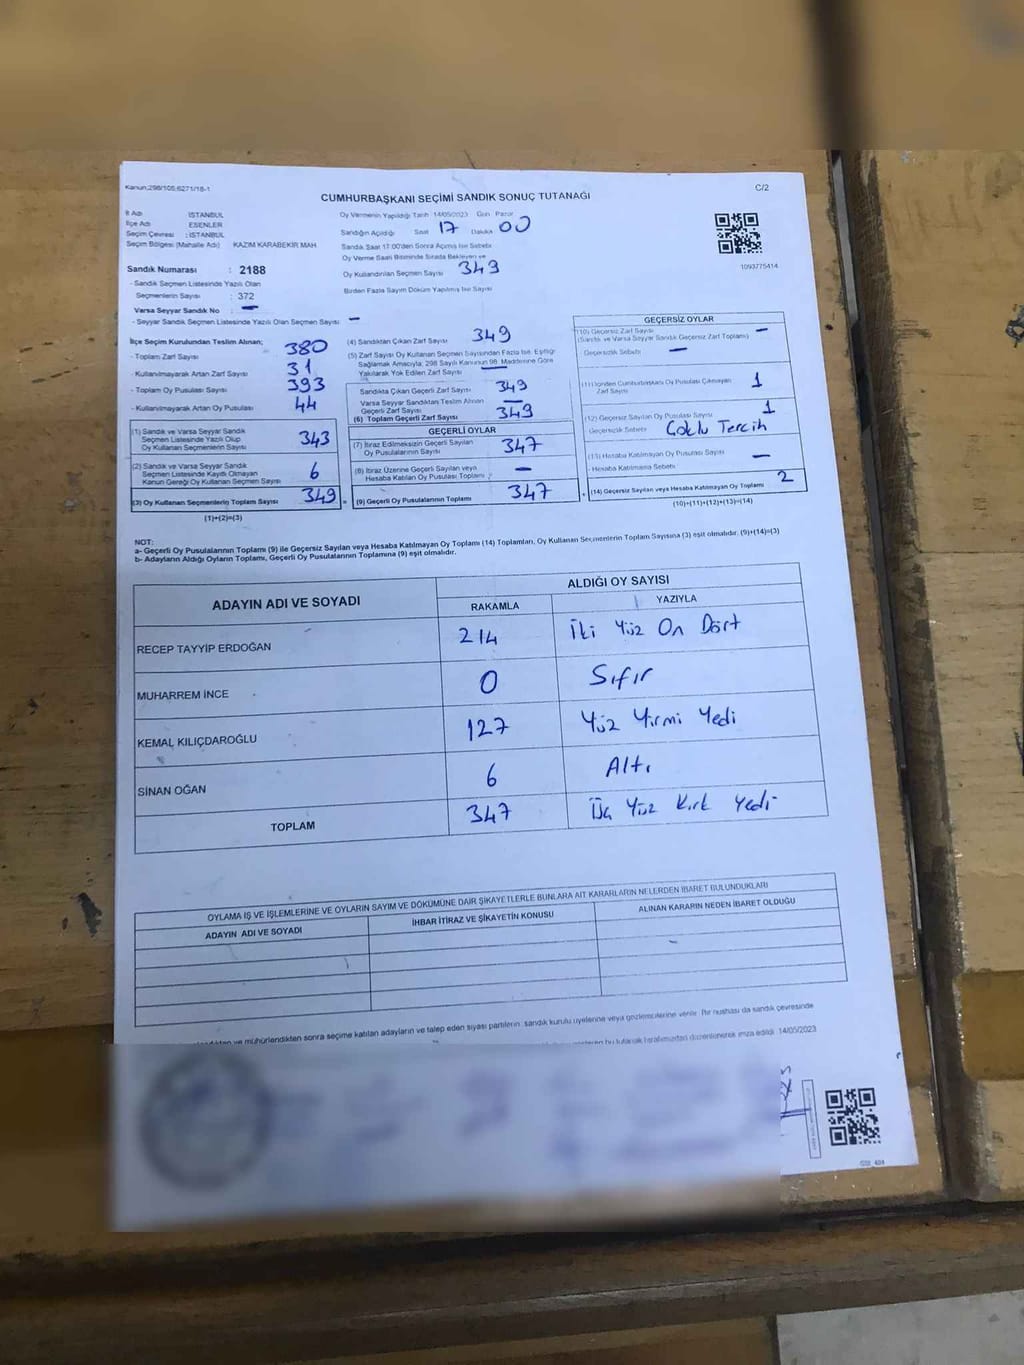 Kanun;298/105;6271/18-1
C/2
CUMHURBAŞKANI SEÇİMİ SANDIK SONUÇ TUTANAĞI
İl Adı : İSTANBUL
İlçe Adı : ESENLER
Seçim Çevresi : İSTANBUL
Seçim Bölgesi (Mahalle Adı) KAZIM KARABEKİR MAH.
Sandık Numarası : 2188
- Sandık Seçmen Listesinde Yazılı Olan
Seçmenlerin Sayısı : 372
Varsa Seyyar Sandık No : –
- Seyyar Sandık Seçmen Listesinde Yazılı Olan Seçmen Sayısı –
Oy Vermenin Yapıldığı Tarih 14/05/2023 Gün Pazar
Sandığın Açıldığı Saat 17 Dakika 00
Sandık Saat 17:00'den Sonra Açılmış İse Sebebi
Oy Verme Saati Bitiminde Sırada Bekleyen ve
Oy Kullandırılan Seçmen Sayısı 349
Birden Fazla Sayım Döküm Yapılmış İse Sayısı
1093775414
İlçe Seçim Kurulundan Teslim Alınan;
- Toplam Zarf Sayısı 380
- Kullanılmayarak Artan Zarf Sayısı 31
- Toplam Oy Pusulası Sayısı 393
- Kullanılmayarak Artan Oy Pusulası 44
(1) Sandık ve Varsa Seyyar Sandık
Seçmen Listesinde Yazılı Olup
Oy Kullanan Seçmenlerin Sayısı 343
(2) Sandık ve Varsa Seyyar Sandık
Seçmen Listesinde Kayıtlı Olmayan
Kanun Gereği Oy Kullanan Seçmen Sayısı 6
(3) Oy Kullanan Seçmenlerin Toplam Sayısı 349
(1)+(2)=(3)
(4) Sandıktan Çıkan Zarf Sayısı 349
(5) Zarf Sayısı Oy Kullanan Seçmen Sayısından Fazla İse, Eşitliği
Sağlamak Amacıyla, 298 Sayılı Kanunun 98. Maddesine Göre
Yakılarak Yok Edilen Zarf Sayısı –
Sandıkta Çıkan Geçerli Zarf Sayısı 349
Varsa Seyyar Sandıktan Teslim Alınan
Geçerli Zarf Sayısı –
(6) Toplam Geçerli Zarf Sayısı 349
GEÇERLİ OYLAR
(7) İtiraz Edilmeksizin Geçerli Sayılan
Oy Pusulasının Sayısı 347
(8) İtiraz Üzerine Geçerli Sayılan veya
Hesaba Katılan Oy Pusulası Toplamı –
(9) Geçerli Oy Pusulalarının Toplamı 347
GEÇERSİZ OYLAR
(10) Geçersiz Zarf Sayısı
(Sandık ve Varsa Seyyar Sandık Geçersiz Zarf Toplamı) –
Geçersizlik Sebebi –
(11) İçinden Cumhurbaşkanı Oy Pusulası Çıkmayan
Zarf Sayısı 1
(12) Geçersiz Sayılan Oy Pusulası Sayısı 1
- Geçersizlik Sebebi Çoklu Tercih
(13) Hesaba Katılmayan Oy Pusulası Sayısı –
- Hesaba Katılmama Sebebi
(14) Geçersiz Sayılan veya Hesaba Katılmayan Oy Toplamı 2
(10)+(11)+(12)+(13)=(14)
NOT:
a- Geçerli Oy Pusulalarının Toplamı (9) ile Geçersiz Sayılan veya Hesaba Katılmayan Oy Toplamı (14) Toplamları, Oy Kullanan Seçmenlerin Toplam Sayısına (3) eşit olmalıdır. (9)+(14)=(3)
b- Adayların Aldığı Oyların Toplamı, Geçerli Oy Pusulalarının Toplamına (9) eşit olmalıdır.
ADAYIN ADI VE SOYADI ALDIĞI OY SAYISI
RAKAMLA YAZIYLA
RECEP TAYYİP ERDOĞAN 214 İki Yüz On Dört
MUHARREM İNCE 0 Sıfır
KEMAL KILIÇDAROĞLU 127 Yüz Yirmi Yedi
SİNAN OĞAN 6 Altı
TOPLAM 347 Üç Yüz Kırk Yedi
OYLAMA İŞ VE İŞLEMLERİNE VE OYLARIN SAYIM VE DÖKÜMÜNE DAİR ŞİKAYETLERLE BUNLARA AİT KARARLARIN NELERDEN İBARET BULUNDUKLARI
ADAYIN ADI VE SOYADI İHBAR İTİRAZ VE ŞİKAYETİN KONUSU ALINAN KARARIN NEDEN İBARET OLDUĞU
ve mühürlendikten sonra seçime katılan adayların ve talep eden siyasi partilerin sandık kurulu üyelerine veya gözlemcilerine verilir. Bir nüshası da sandık çevresinde
bu tutanak tarafımızdan düzenlenerek imza edildi. 14/05/2023